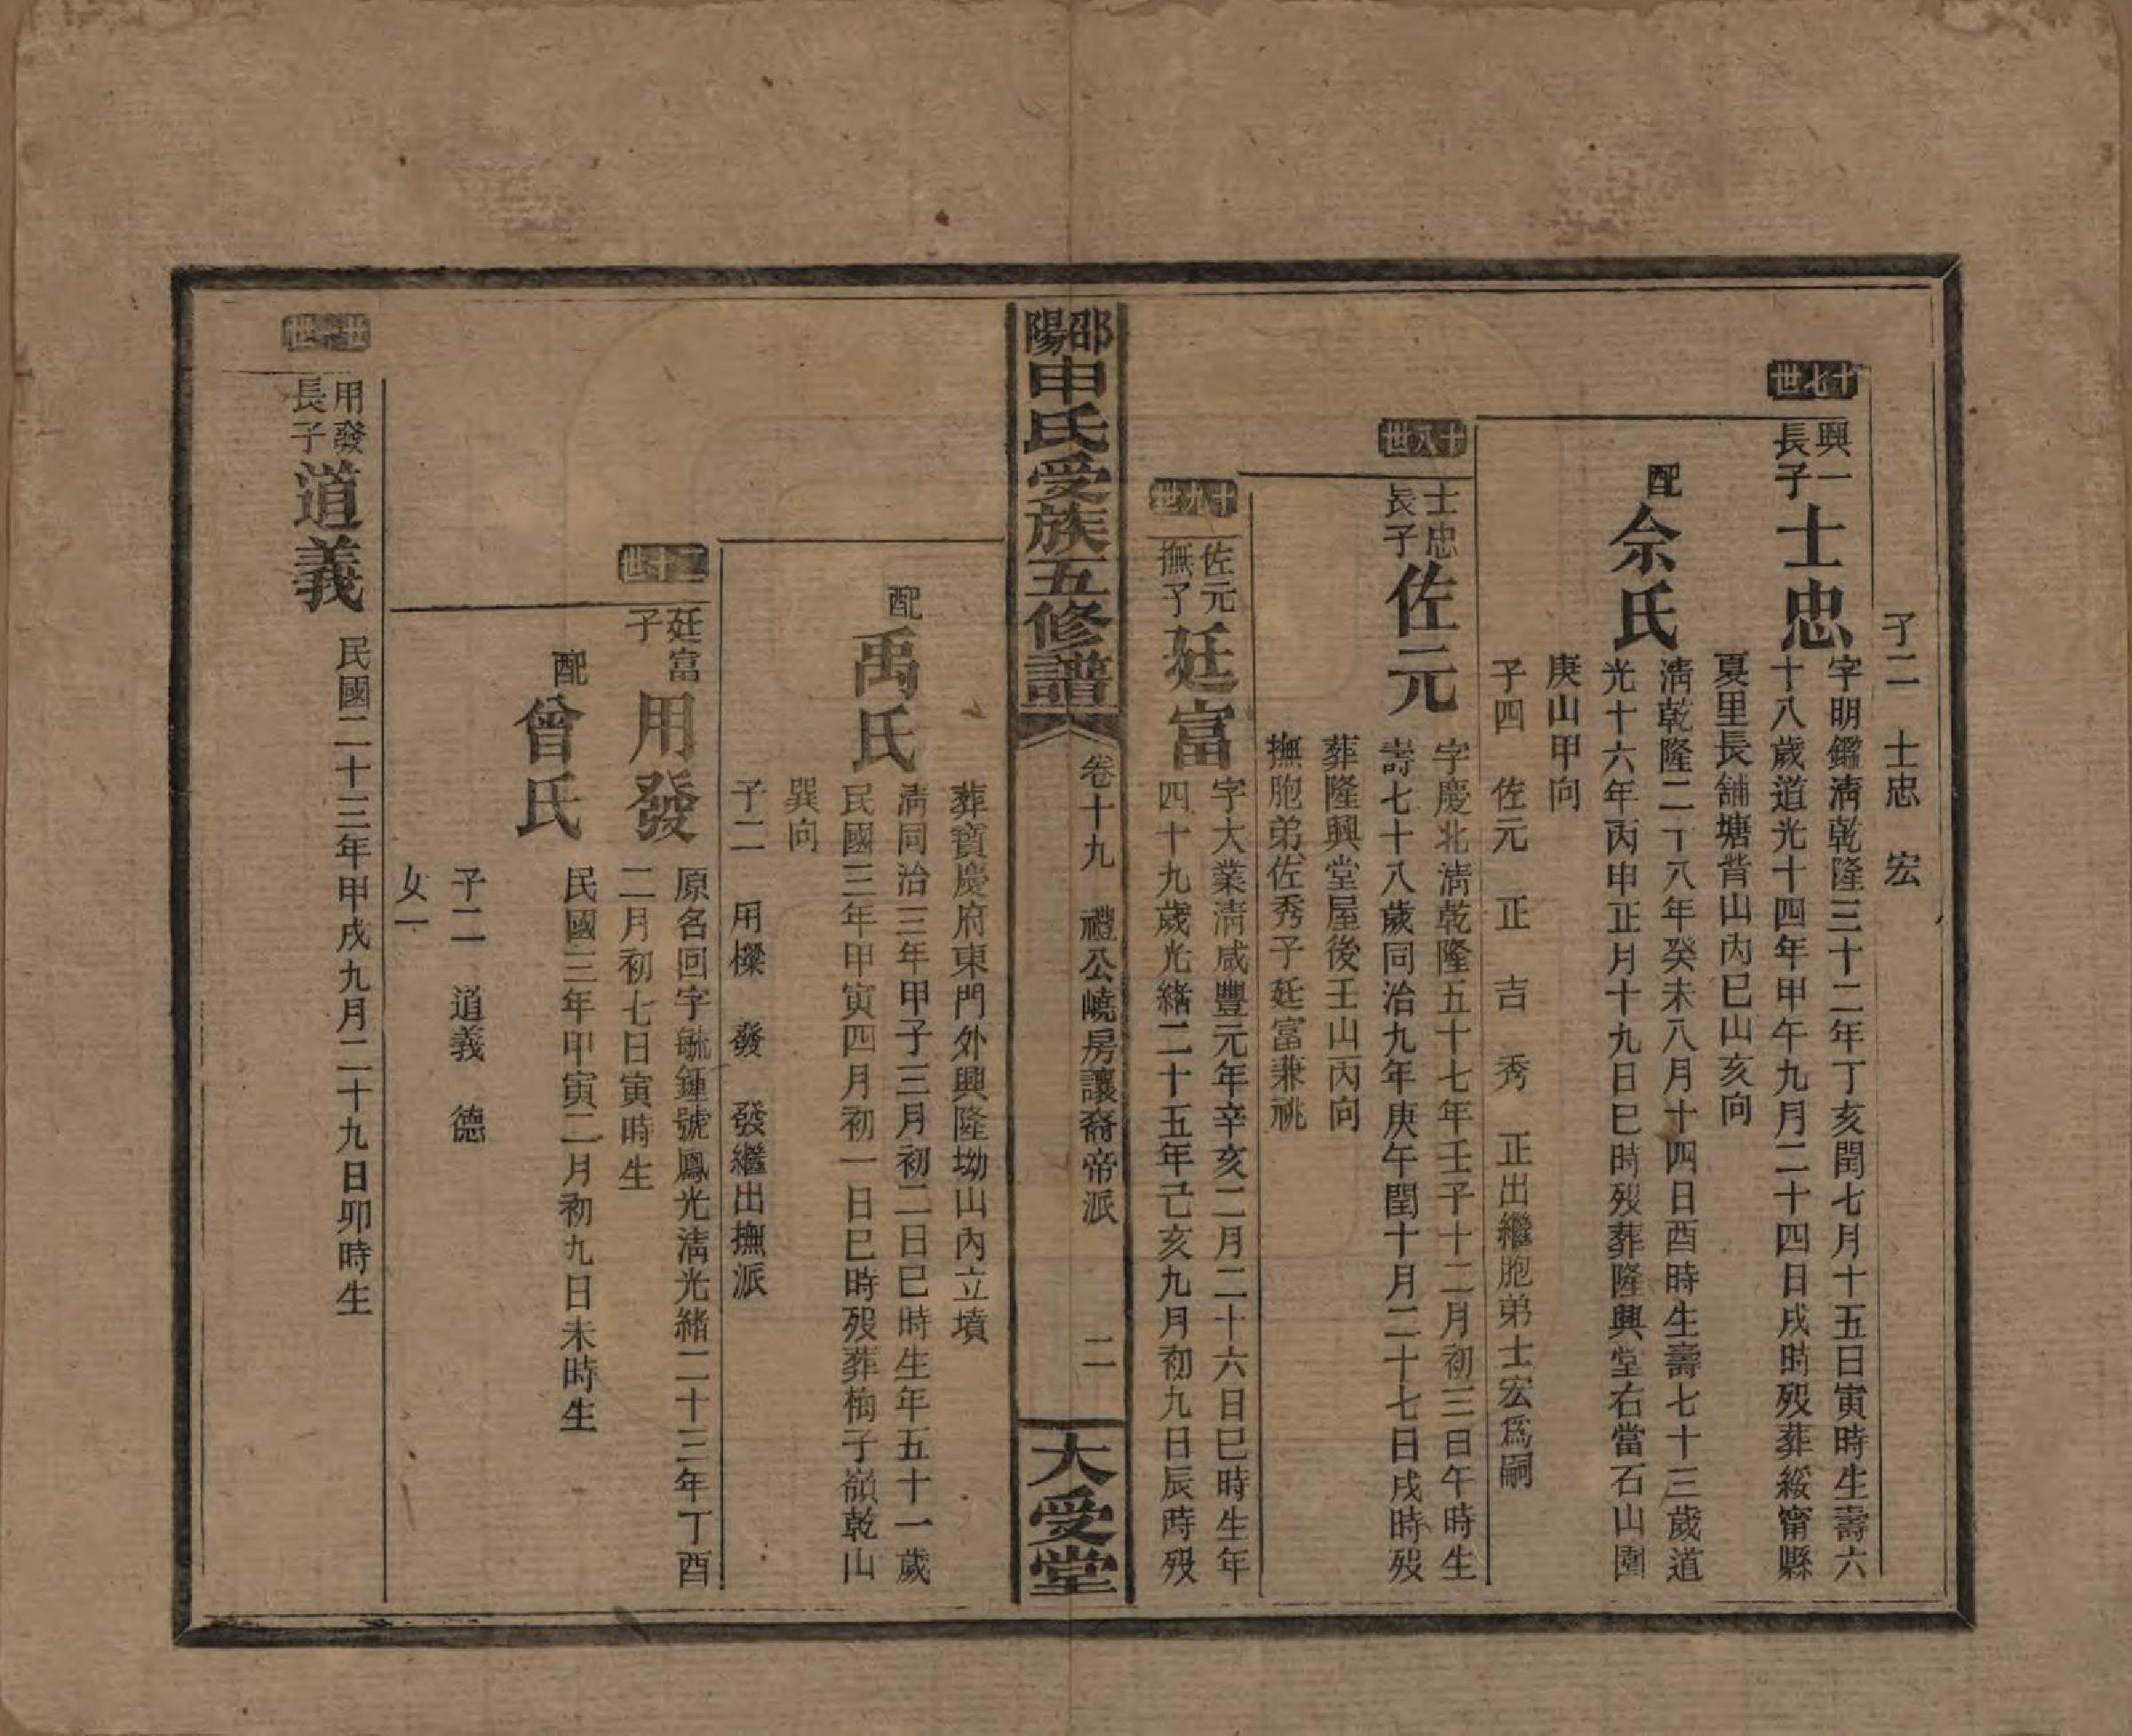 子二 士忠 宏
十七世
興一長子
士忠
字明鑑淸乾隆三十二年丁亥閏七月十五日寅時生壽六
十八歲道光十四年甲午九月二十四日戌時歿葬綏甯縣
夏里長舖塘背山內巳山亥向
配
佘氏
淸乾隆二十八年癸未八月十四日酉時生壽七十三歲道
光十六年丙申正月十九日巳時歿葬隆興堂右當石山園
庚山甲向
子四 佐元 正 吉 秀 正出繼胞弟士宏爲嗣
十八世
士忠長子
佐元
字慶北淸乾隆五十七年壬子十二月初三日午時生
壽七十八歲同治九年庚午閏十月二十七日戌時歿
葬隆興堂屋後壬山丙向
撫胞弟佐秀子廷富兼祧
十九世
佐元撫子
廷富
字大業淸咸豐元年辛亥二月二十六日巳時生年
四十九歲光緖二十五年己亥九月初九日辰時歿
邵陽申氏受族五修譜
卷十九 禮公嶢房讓裔帝派 二
大受堂
葬寶慶府東門外興隆坳山內立墳
配
禹氏
淸同治三年甲子三月初二日巳時生年五十一歲
民國三年甲寅四月初一日巳時歿葬梅子嶺乾山
巽向
子二 用樑 發 發繼出撫派
二十世
廷富子
用發
原名回字毓鍾號鳳光淸光緖二十三年丁酉
二月初七日寅時生
配
曾氏
民國三年甲寅二月初九日未時生
子二 道義 德
女一
廿一世
用發長子
道義
民國二十三年甲戌九月二十九日卯時生